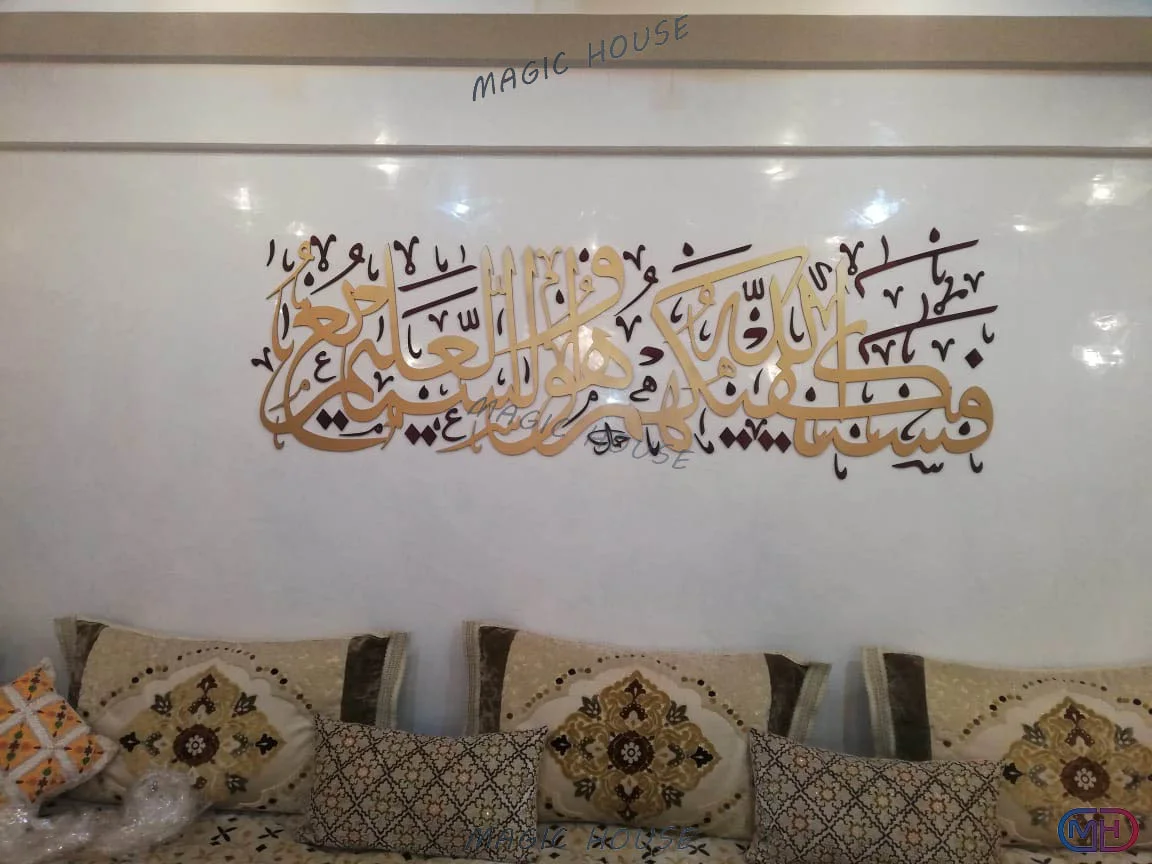 MAGIC HOUSE
فسيكفيكهم الله وهو السميع العليم
MAGIC HOUSE
MAGIC HOUSE
MH